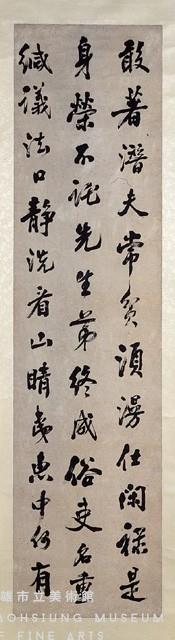 敢著潛夫常貧須漫仕閑祿是
身榮不託先生第終成俗吏名重
緘議法口靜洗看山晴夷惠中仍有
雄市立美術館
AOHSIUNG MUSEUM
F FINE ARTS